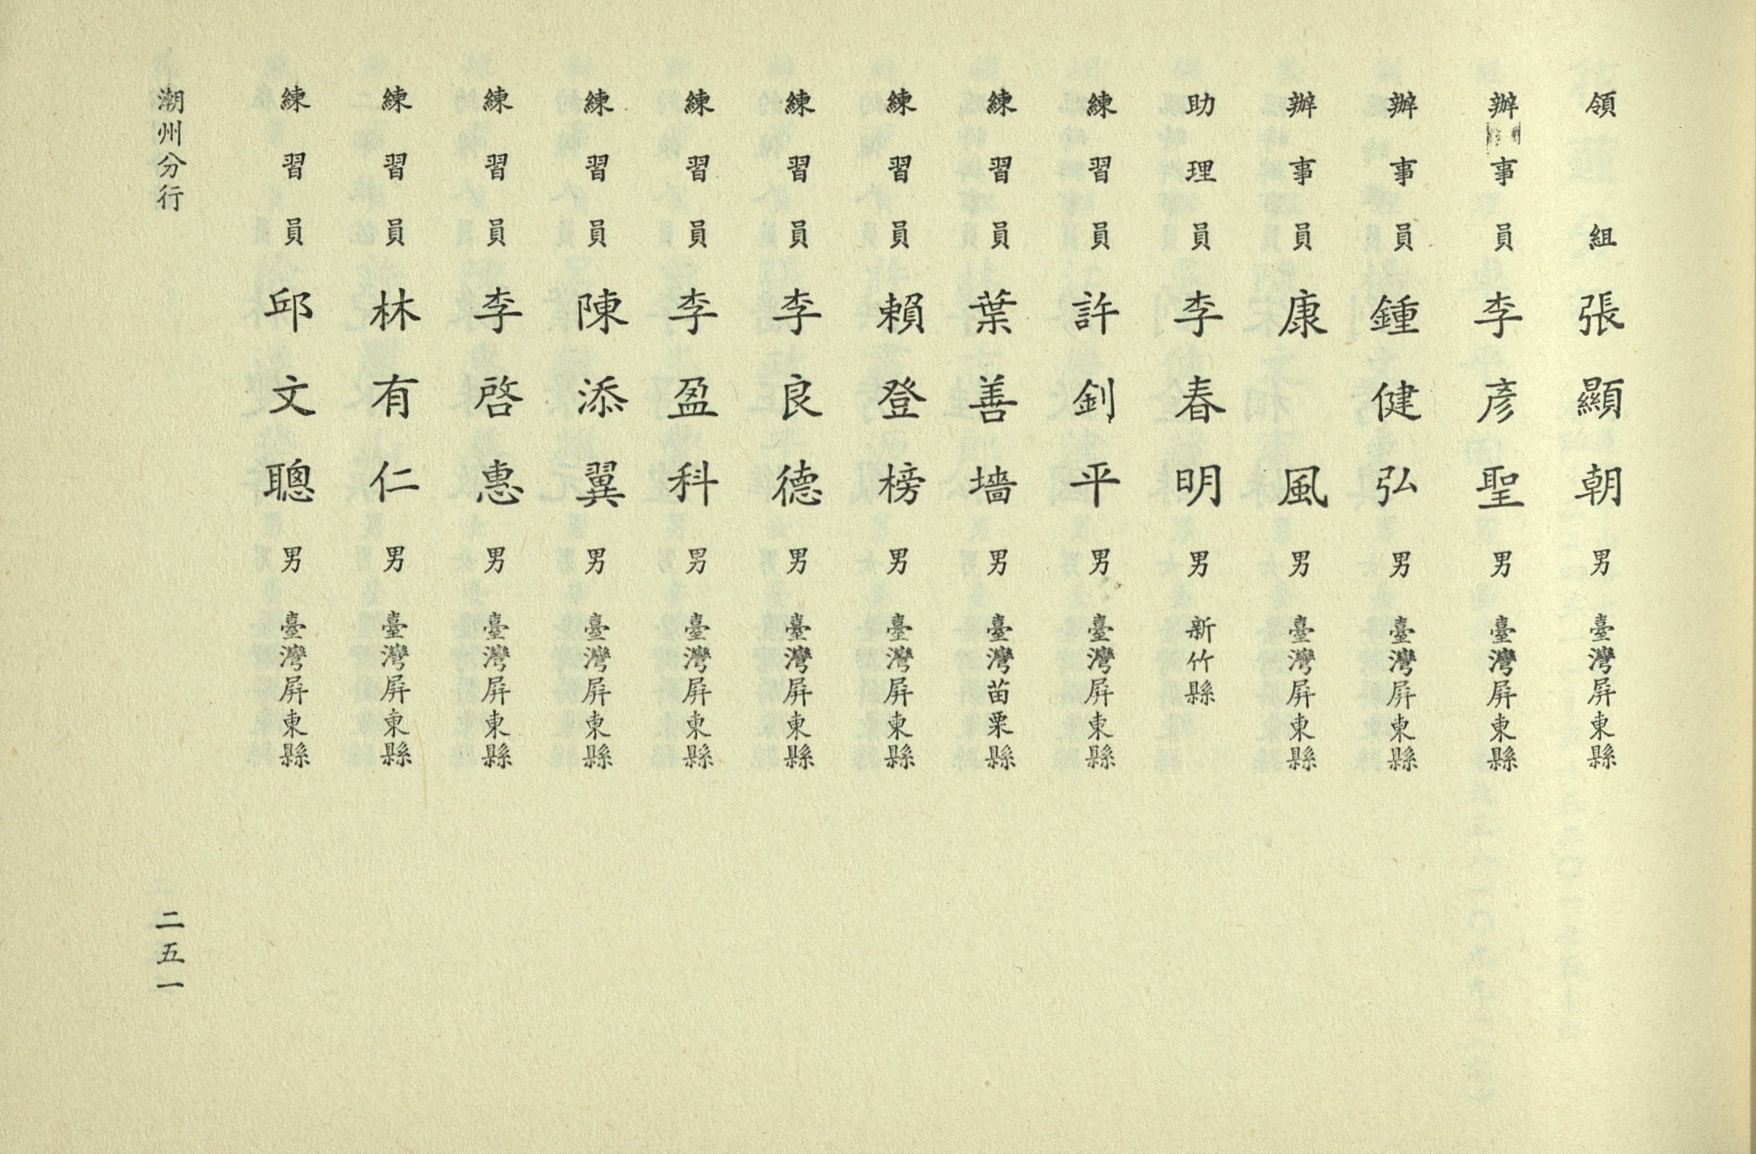 領組張顯朝男臺灣屏東縣
辦事員李彥聖男臺灣屏東縣
辦事員鍾健弘男臺灣屏東縣
辦事員康風男臺灣屏東縣
助理員李春明男新竹縣
練習員許釗平男臺灣屏東縣
練習員葉善墻男臺灣苗栗縣
練習員賴登榜男臺灣屏東縣
練習員李良德男臺灣屏東縣
練習員李盈科男臺灣屏東縣
練習員陳添翼男臺灣屏東縣
練習員李啓惠男臺灣屏東縣
練習員林有仁男臺灣屏東縣
練習員邱文聰男臺灣屏東縣
潮州分行
二五一